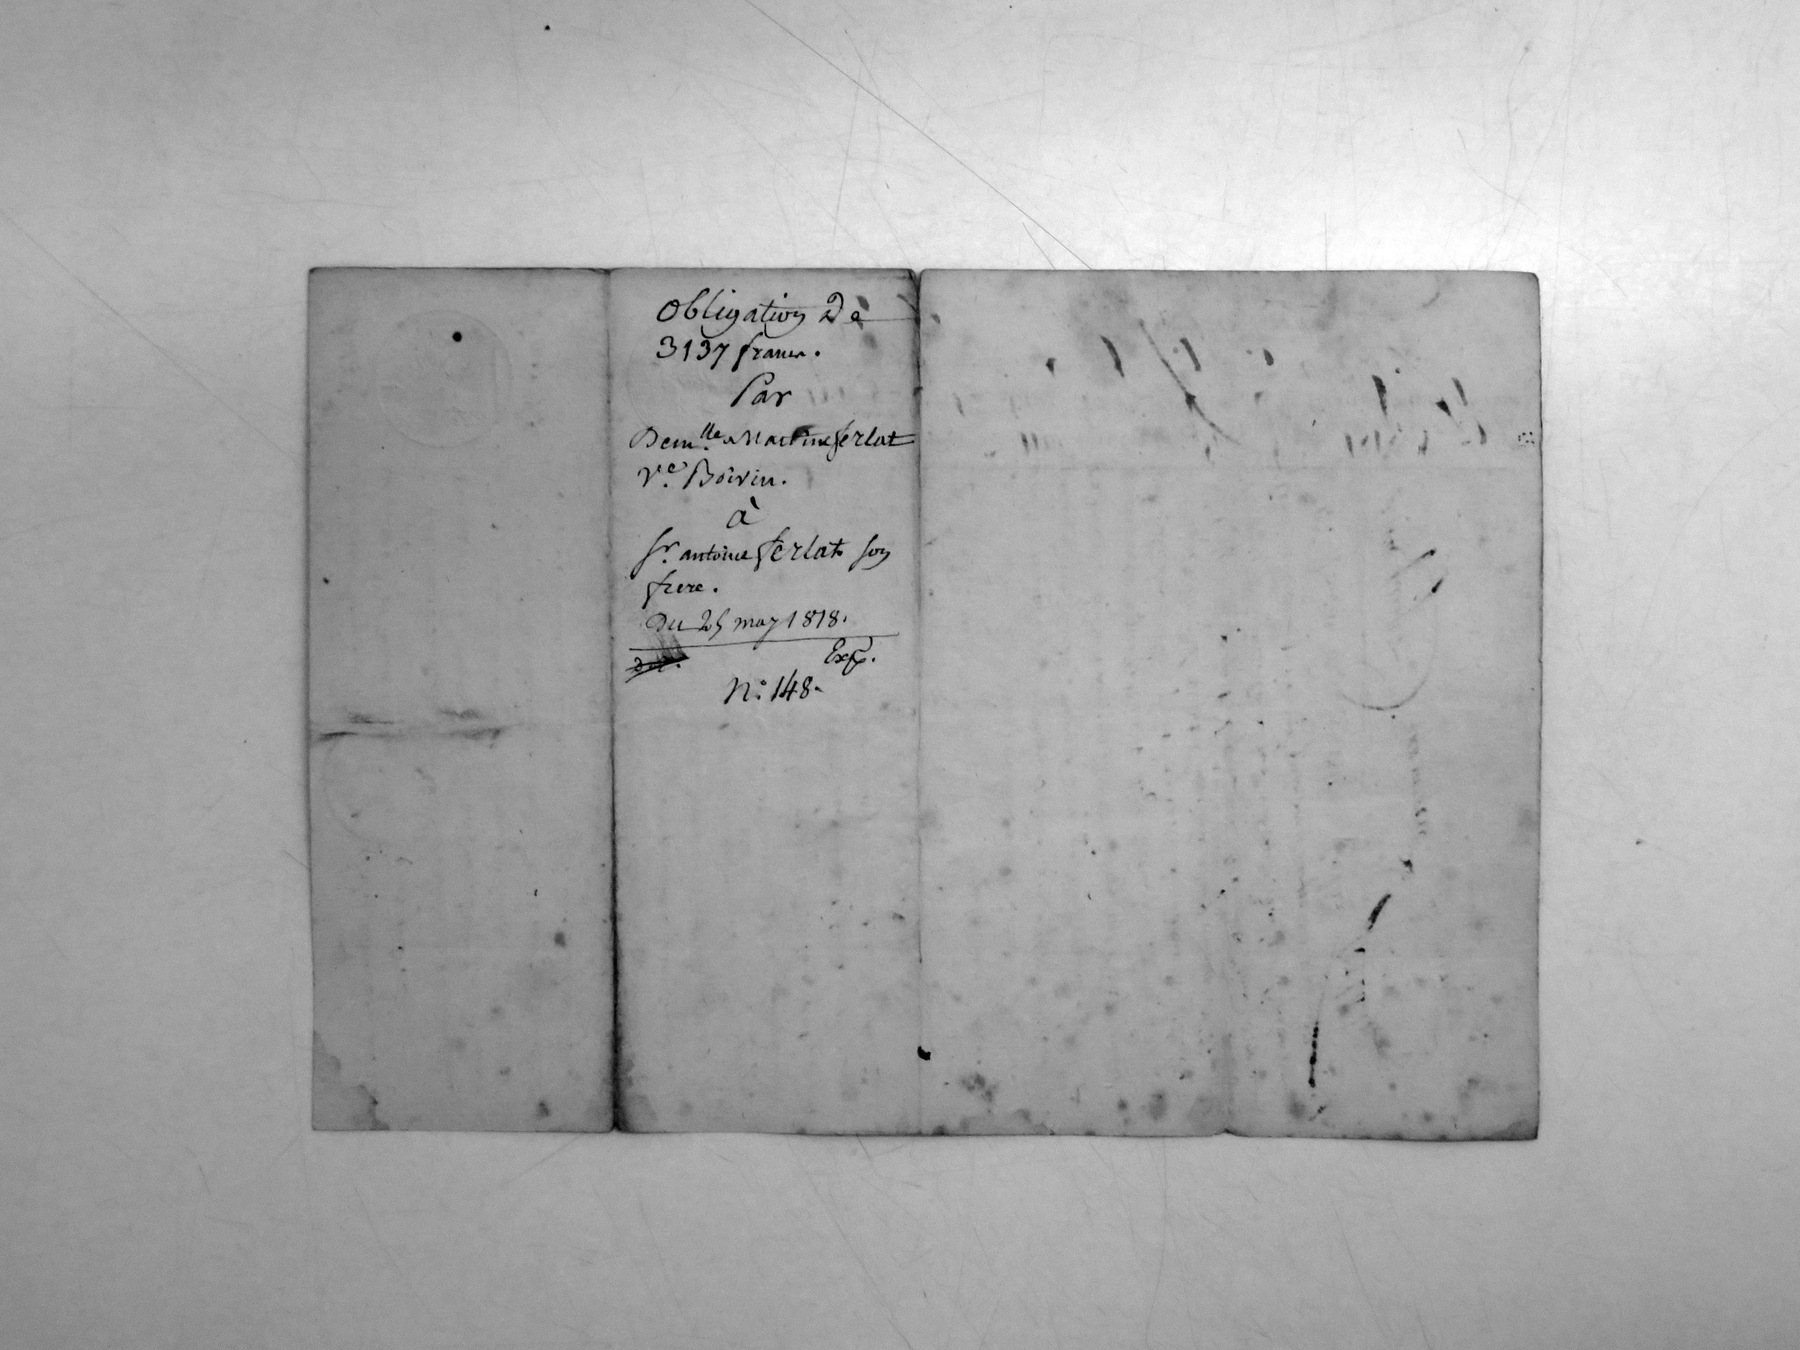 Obligation De
3137 francs.
Par
Dem.lle Martine ferlat
V.e Boivin.
à
Sr. antoine ferlat son
frere.
Du 25 may 1818.
Exp.
N.o 148.